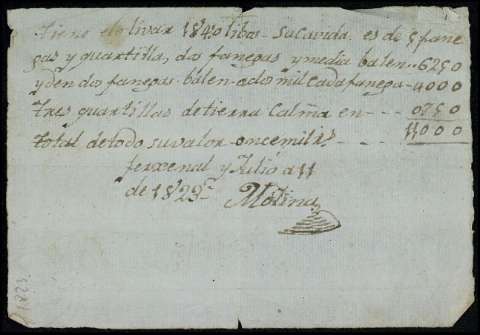 Tiene el olivar 184 olibos - su cavida es de 5 fane
gas y quartilla, dos fanegas y media balen .. 6250
y den dos fanegas balen ados mil cada fanega - 4000
tres quartillas de tierra Calma en - - - 0750
total de todo su valor once mil r.s - - - 11000
fexenal y Julio a 11
de 1829 Molina
1829